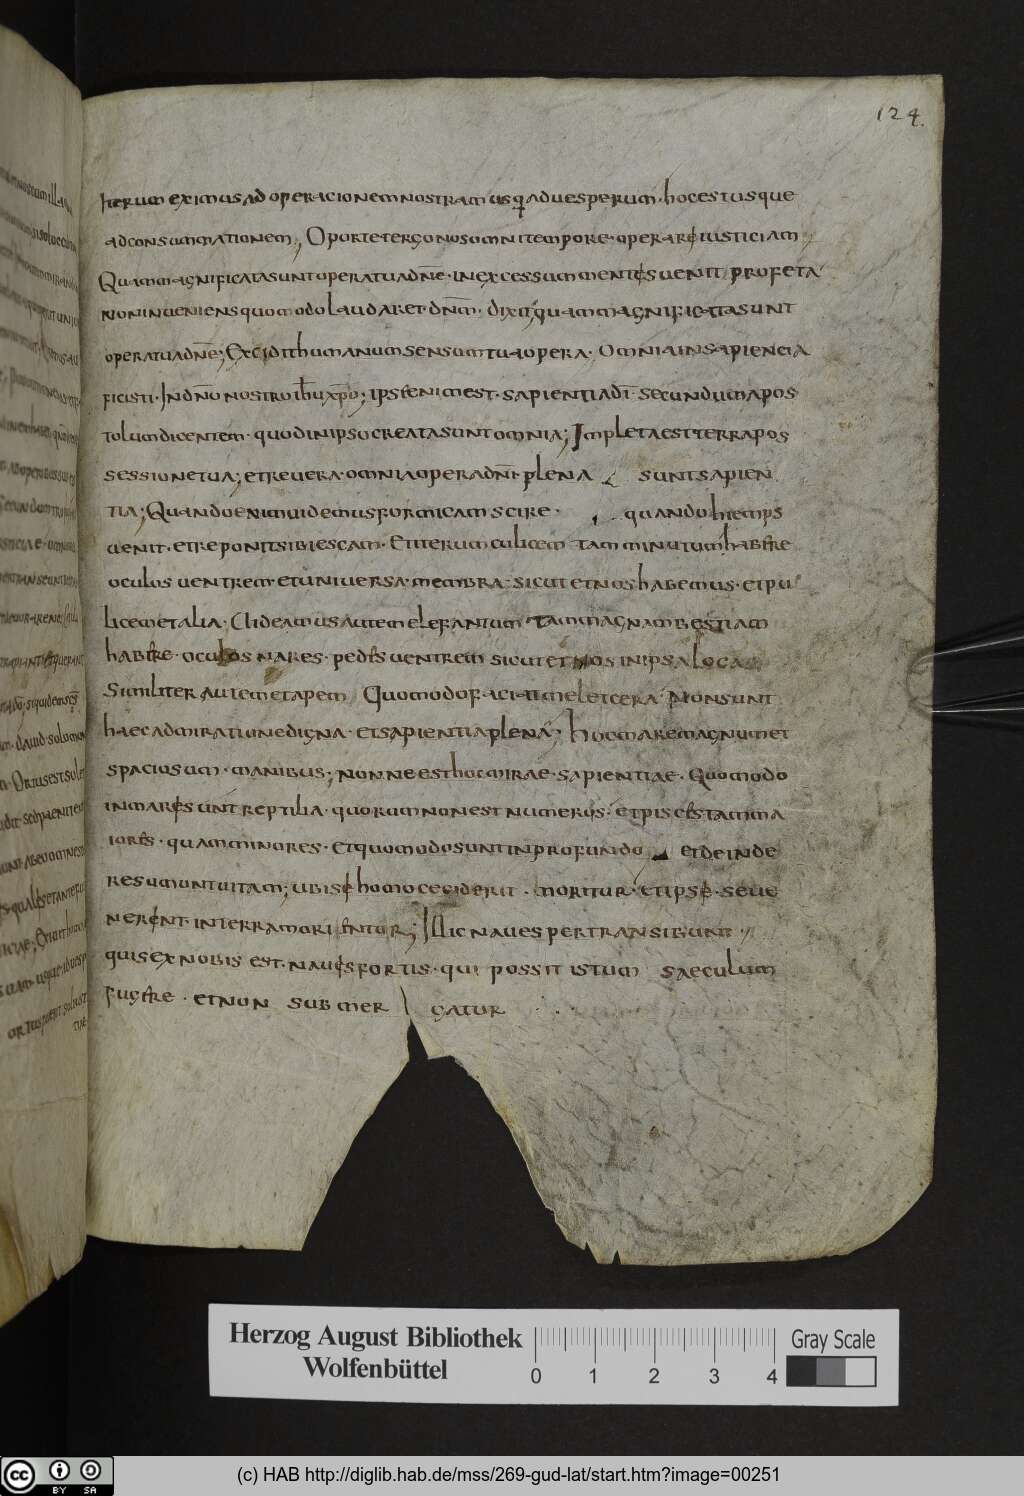 124.
iterum eximus ad operacionem nostram usq; ad uesperum · hoc est usque
ad consummationem; Oportet ergo nos omni tempore · operari iusticiam;
Quam magnificata sunt opera tua dne̅ · in excessum mentis uenit profeta
non inueniens quomodo laudaret dnm̅ · dixit; quam magnificata sunt
opera tua dne̅; Excidit humanum sensum tua opera · Omnia in sapiencia
ficisti · In dn̅o nostro ih̅u xp̅o; ipse enim est · sapientia dī · secundum apos
tolum dicentem · quod in ipso creata sunt omnia; Impleta est terra pos
sessione tua; et reuera · omnia opera dnī · plena sunt sapien
tia; Quando enim uidemus formicam scire · quando hiemps
uenit · et reponit sibi escam · Et iterum culicem tam minutum habere
oculos uentrem et uniuersa membra · sicut et nos habemus · et pu
licem et alia · Uideamus autem elefantum tam magnam bestiam
habere · oculos nares · pedes uentrem sicut et nos in ipsa loca
Similiter autem et apem Quomodo faciat mel et cera Non sunt
haec admiratione digna · et sapientia plena; Hoc mare magnum et
spaciosum · manibus; nonne est hoc mirae · sapientiae · Quomodo
in mare sunt reptilia · quorum non est numerus · et pisces tam ma
iores · quam minores · et quomodo sunt in profundo et deinde
resumunt uitam; ubi se homo ceciderit · moritur · et ipse · se ue
nerent · in terra morientur; Illic naues pertransibunt
quis ex nobis est · naues fortis · qui possit istum saeculum
fugere · et non submer gatur
Herzog August Bibliothek
Wolfenbüttel
0 1 2 3 4
Gray Scale
cc BY SA
(c) HAB http://diglib.hab.de/mss/269-gud-lat/start.htm?image=00251